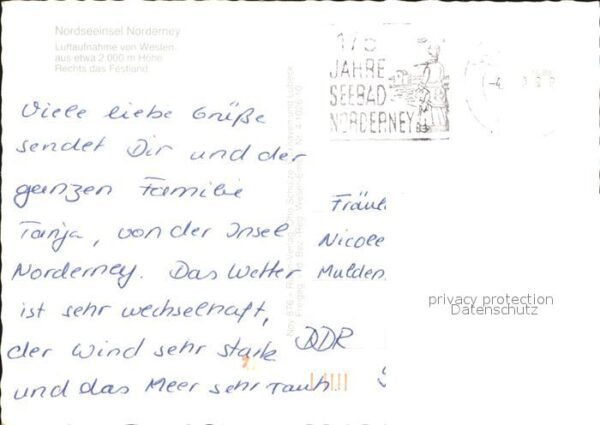 Nordseeinsel Norderney
Luftaufnahme von Westen
aus etwa 2.000 m Höhe
Rechts das Festland
175
JAHRE
SEEBAD
NORDERNEY
Viele liebe Grüße
sendet Dir und der
ganzen Familie
Tanja, von der Insel
Norderney. Das Wetter
ist sehr wechselhaft,
der Wind sehr stark
und das Meer sehr rauh.
Fräul
Nicole
Mulden
DDR
privacy protection
Datenschutz